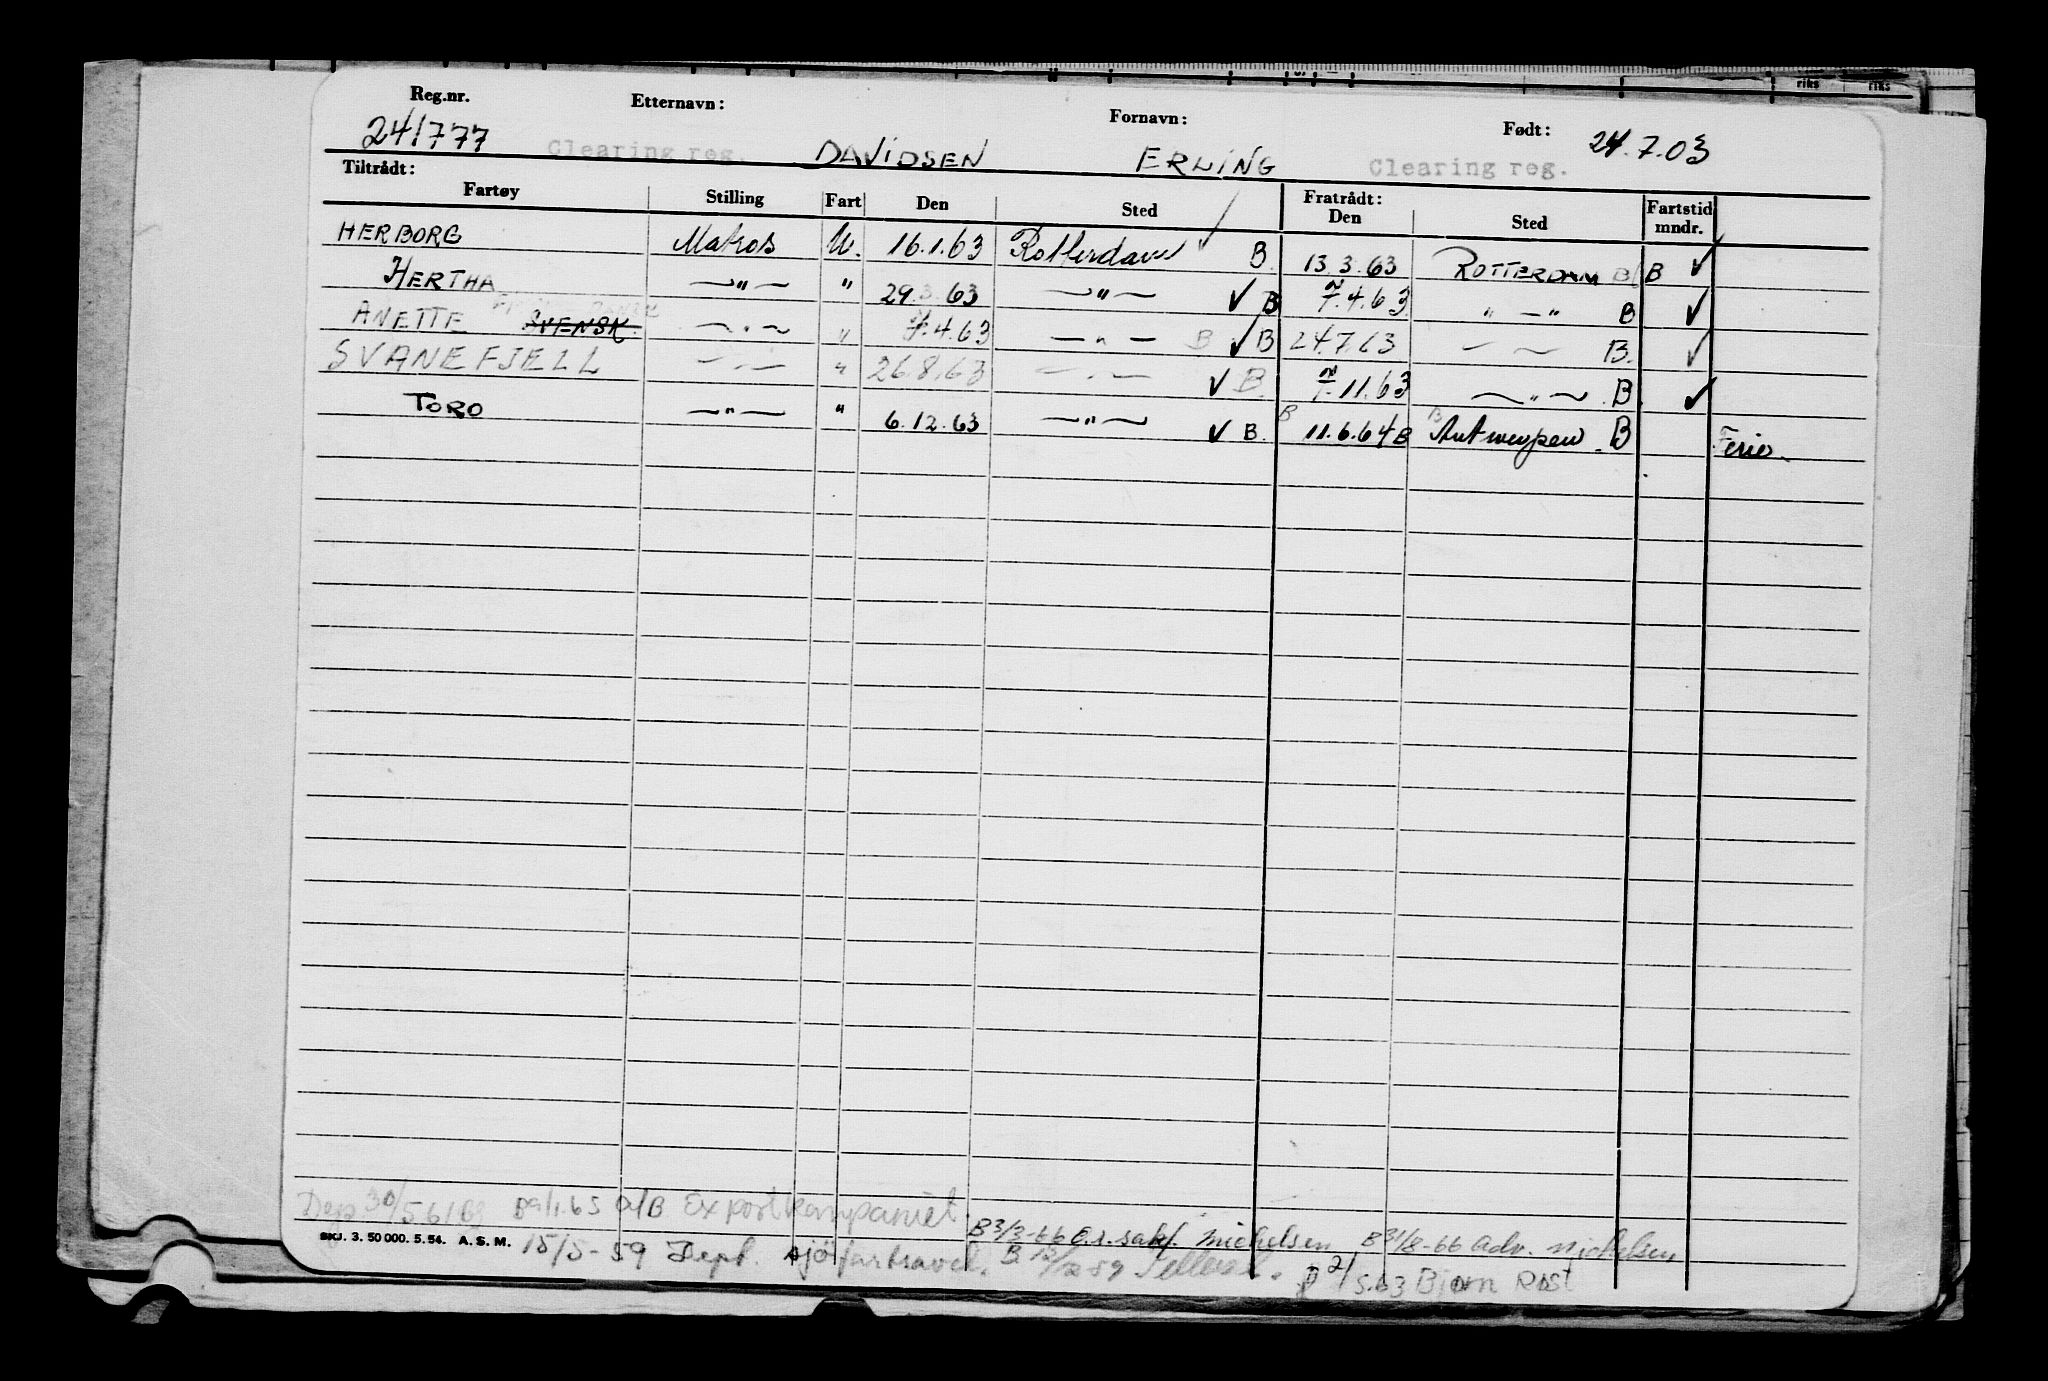 riks riks
Reg.nr. Etternavn: Fornavn: Født:
241777 Clearing reg. DAVIDSEN ERLING Clearing reg. 24.7.03
Tiltrådt: Fratrådt:
Fartøy Stilling Fart Den Sted Den Sted Fartstid mndr.
HERBORG Matros U. 16.1.63 Rotterdam ✓ B. 13.3.63 ROTTERDAM B B ✓
HERTHA —"— " 29.3.63 —"— ✓ B 7.4.63 " —" B ✓
ANETTE SVENSK. —"— " 7.4.63 —"— B ✓ B 24.7.63 — — B. ✓
SVANEFJELL —"— " 26.8.63 —"— ✓ B. 7.11.63 —"— B ✓
TORO —"— " 6.12.63 —"— ✓ B. B 11.6.64 B B Antwerpen B Ferie.
Dep 30/5 61 B9/1.65 A/B Exportkompaniet.
B 3/3-66 O.r.sakf. Michelsen B 31/8-66 Adv. Michelsen
SKJ. 3. 50 000. 5. 54. A. S. M. 15/5-59 Dept. B 12/2 59 B 2/5.63 Bjørn Rist